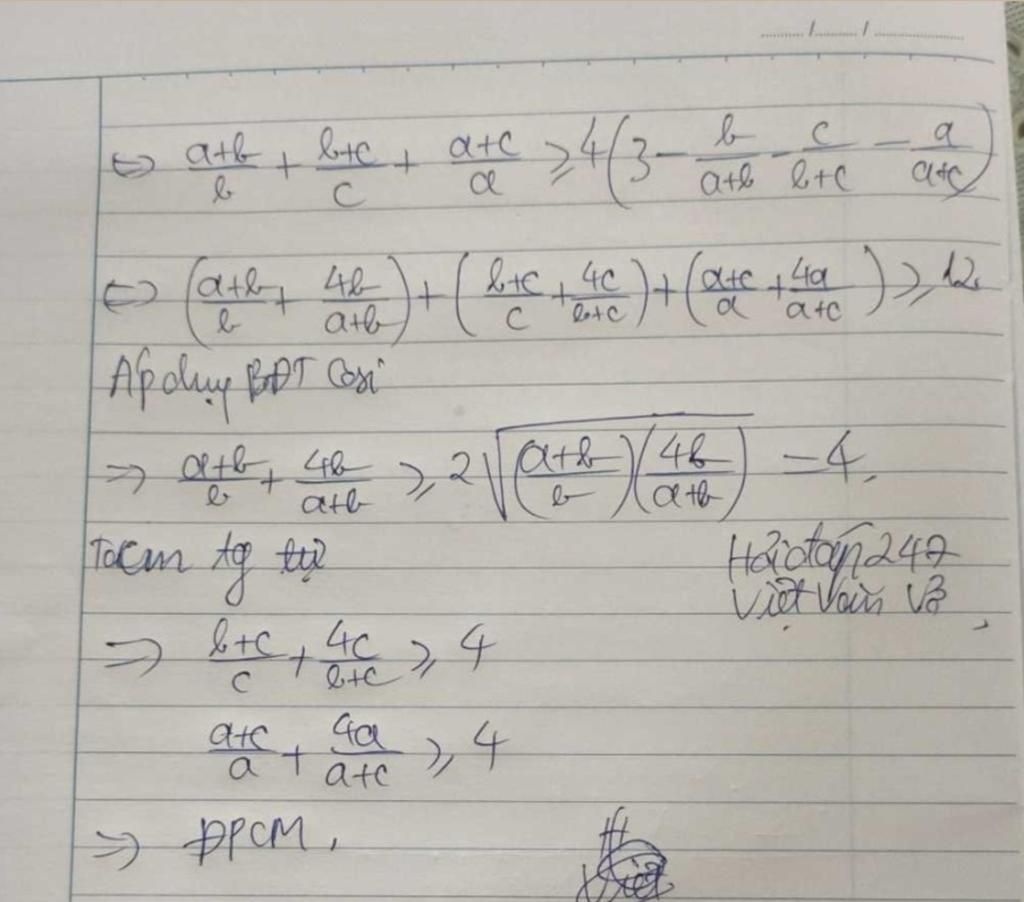 ⇔ (a+b)/b + (b+c)/c + (a+c)/a ≥ 4(3 - b/(a+b) - c/(b+c) - a/(a+c))
⇔ ((a+b)/b + 4b/(a+b)) + ((b+c)/c + 4c/(b+c)) + ((a+c)/a + 4a/(a+c)) ≥ 12
Áp dụng BĐT Cosi
⇒ (a+b)/b + 4b/(a+b) ≥ 2√(((a+b)/b)(4b/(a+b))) = 4.
Ta cm tg tự
Hỏi đáp 247
Việt Văn Võ
⇒ (b+c)/c + 4c/(b+c) ≥ 4
(a+c)/a + 4a/(a+c) ≥ 4
⇒ ĐPCM.